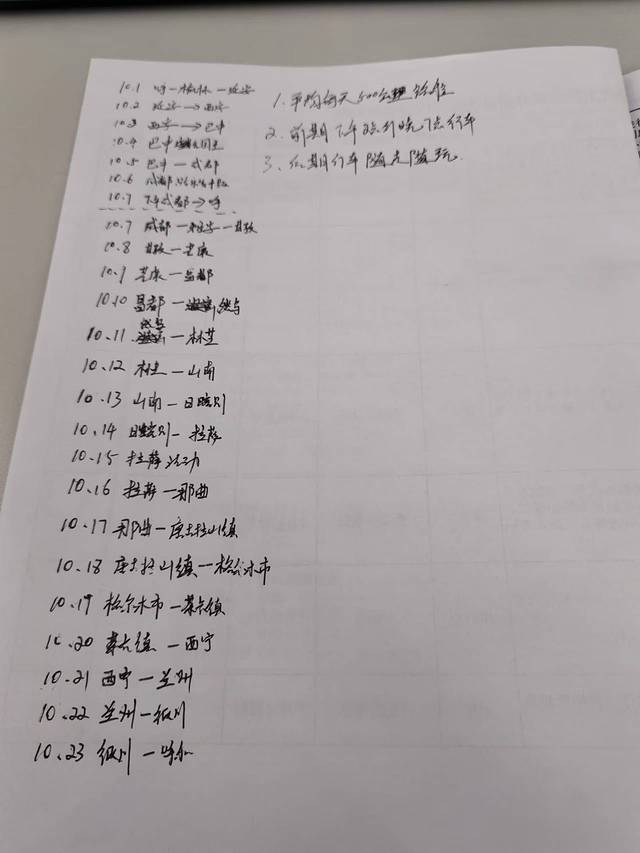 10.1 呼—榆林—延安
10.2 延安→西安
10.3 西安→巴中
10.4 巴中
10.5 巴中—成都
10.6 成都
10.7 下午成都→呼
10.7 成都—雅安—
10.8 —芒康
10.9 芒康—昌都
10.10 昌都—然乌
10.11 然乌—林芝
10.12 林芝—山南
10.13 山南—日喀则
10.14 日喀则—拉萨
10.15 拉萨活动
10.16 拉萨—那曲
10.17 那曲—唐古拉山镇
10.18 唐古拉山镇—格尔木市
10.19 格尔木市—茶卡镇
10.20 茶卡镇—西宁
10.21 西宁—兰州
10.22 兰州—银川
10.23 银川—呼和
1. 平均每天500公里
2. 前期下午 到晚 点行车
3、后期行车随走随玩.